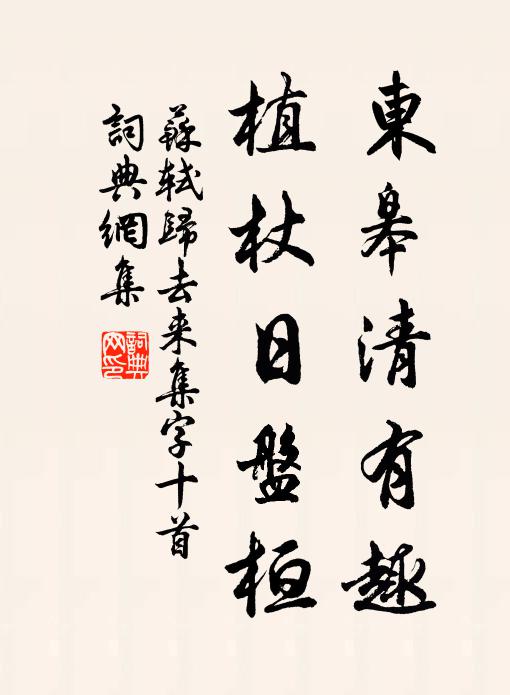 東皋清有趣
植杖日盤桓
蘇軾歸去来集字十首
詞典網集
詞典网印